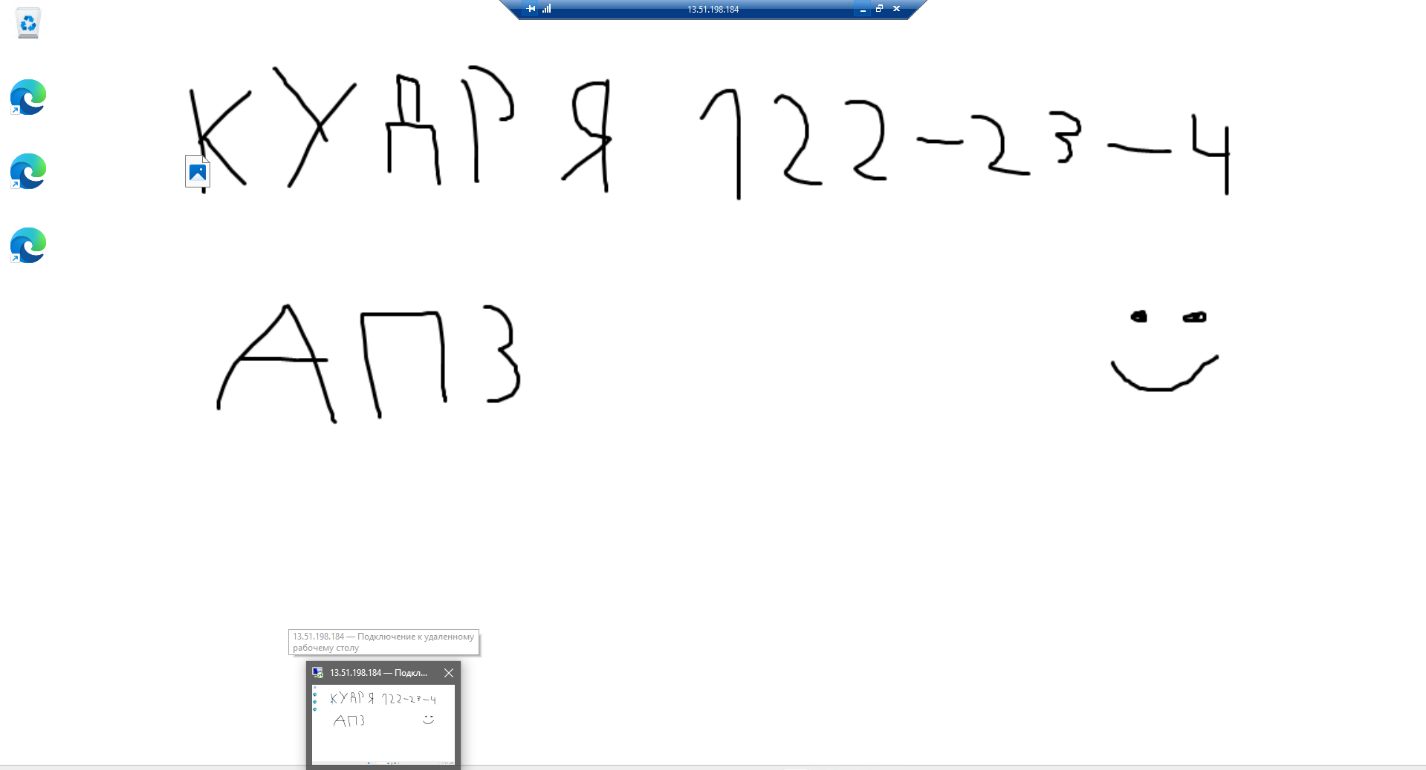 13.51.198.184
КУДРЯ 122-23-4
АПЗ
13.51.198.184 — Подключение к удаленному
рабочему столу
13.51.198.184 — Подкл...
КУДРЯ 122-23-4
АПЗ